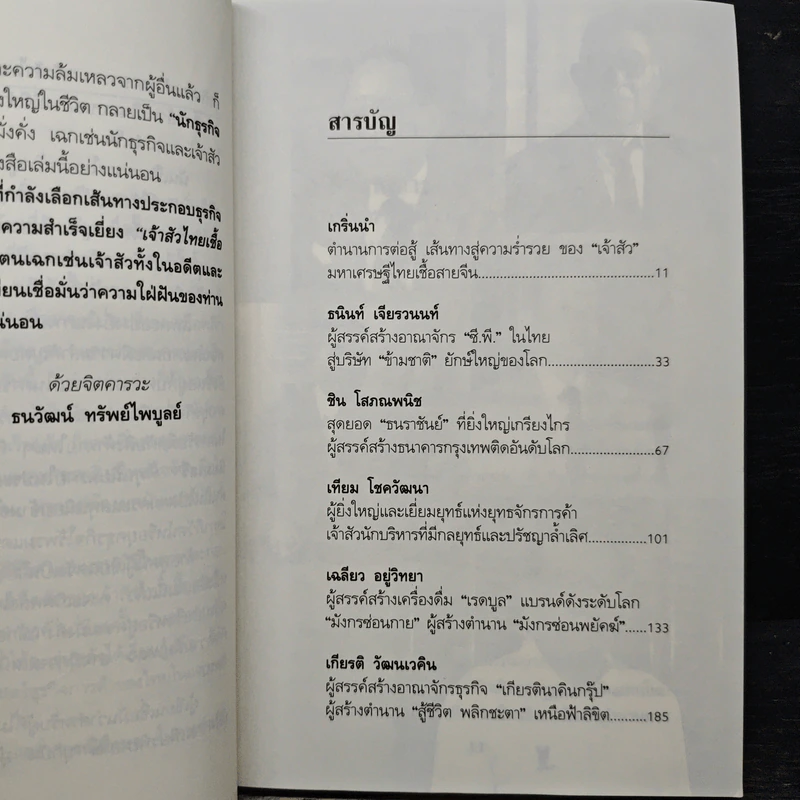 ะความล้มเหลวจากผู้อื่นแล้ว ก็
งใหญ่ในชีวิต กลายเป็น “นักธุรกิจ
มั่งคั่ง เฉกเช่นนักธุรกิจและเจ้าสัว
งสือเล่มนี้อย่างแน่นอน
ที่กำลังเลือกเส้นทางประกอบธุรกิจ
ความสำเร็จเยี่ยง “เจ้าสัวไทยเชื้อ
ตนเฉกเช่นเจ้าสัวทั้งในอดีตและ
ขียนเชื่อมั่นว่าความใฝ่ฝันของท่าน
น่นอน
ด้วยจิตคารวะ
ธนวัฒน์ ทรัพย์ไพบูลย์
สารบัญ
เกริ่นนำ
ตำนานการต่อสู้ เส้นทางสู่ความร่ำรวย ของ “เจ้าสัว”
มหาเศรษฐีไทยเชื้อสายจีน..............................................11
ธนินท์ เจียรวนนท์
ผู้สรรค์สร้างอาณาจักร “ซี.พี.” ในไทย
สู่บริษัท “ข้ามชาติ” ยักษ์ใหญ่ของโลก............................33
ชิน โสภณพนิช
สุดยอด “ธนราชันย์” ที่ยิ่งใหญ่เกรียงไกร
ผู้สรรค์สร้างธนาคารกรุงเทพติดอันดับโลก......................67
เทียม โชควัฒนา
ผู้ยิ่งใหญ่และเยี่ยมยุทธ์แห่งยุทธจักรการค้า
เจ้าสัวนักบริหารที่มีกลยุทธ์และปรัชญาล้ำเลิศ...............101
เฉลียว อยู่วิทยา
ผู้สรรค์สร้างเครื่องดื่ม “เรดบูล” แบรนด์ดังระดับโลก
“มังกรซ่อนกาย” ผู้สร้างตำนาน “มังกรซ่อนพยัคฆ์”......133
เกียรติ วัฒนเวคิน
ผู้สรรค์สร้างอาณาจักรธุรกิจ “เกียรตินาคินกรุ๊ป”
ผู้สร้างตำนาน “สู้ชีวิต พลิกชะตา” เหนือฟ้าลิขิต..........185